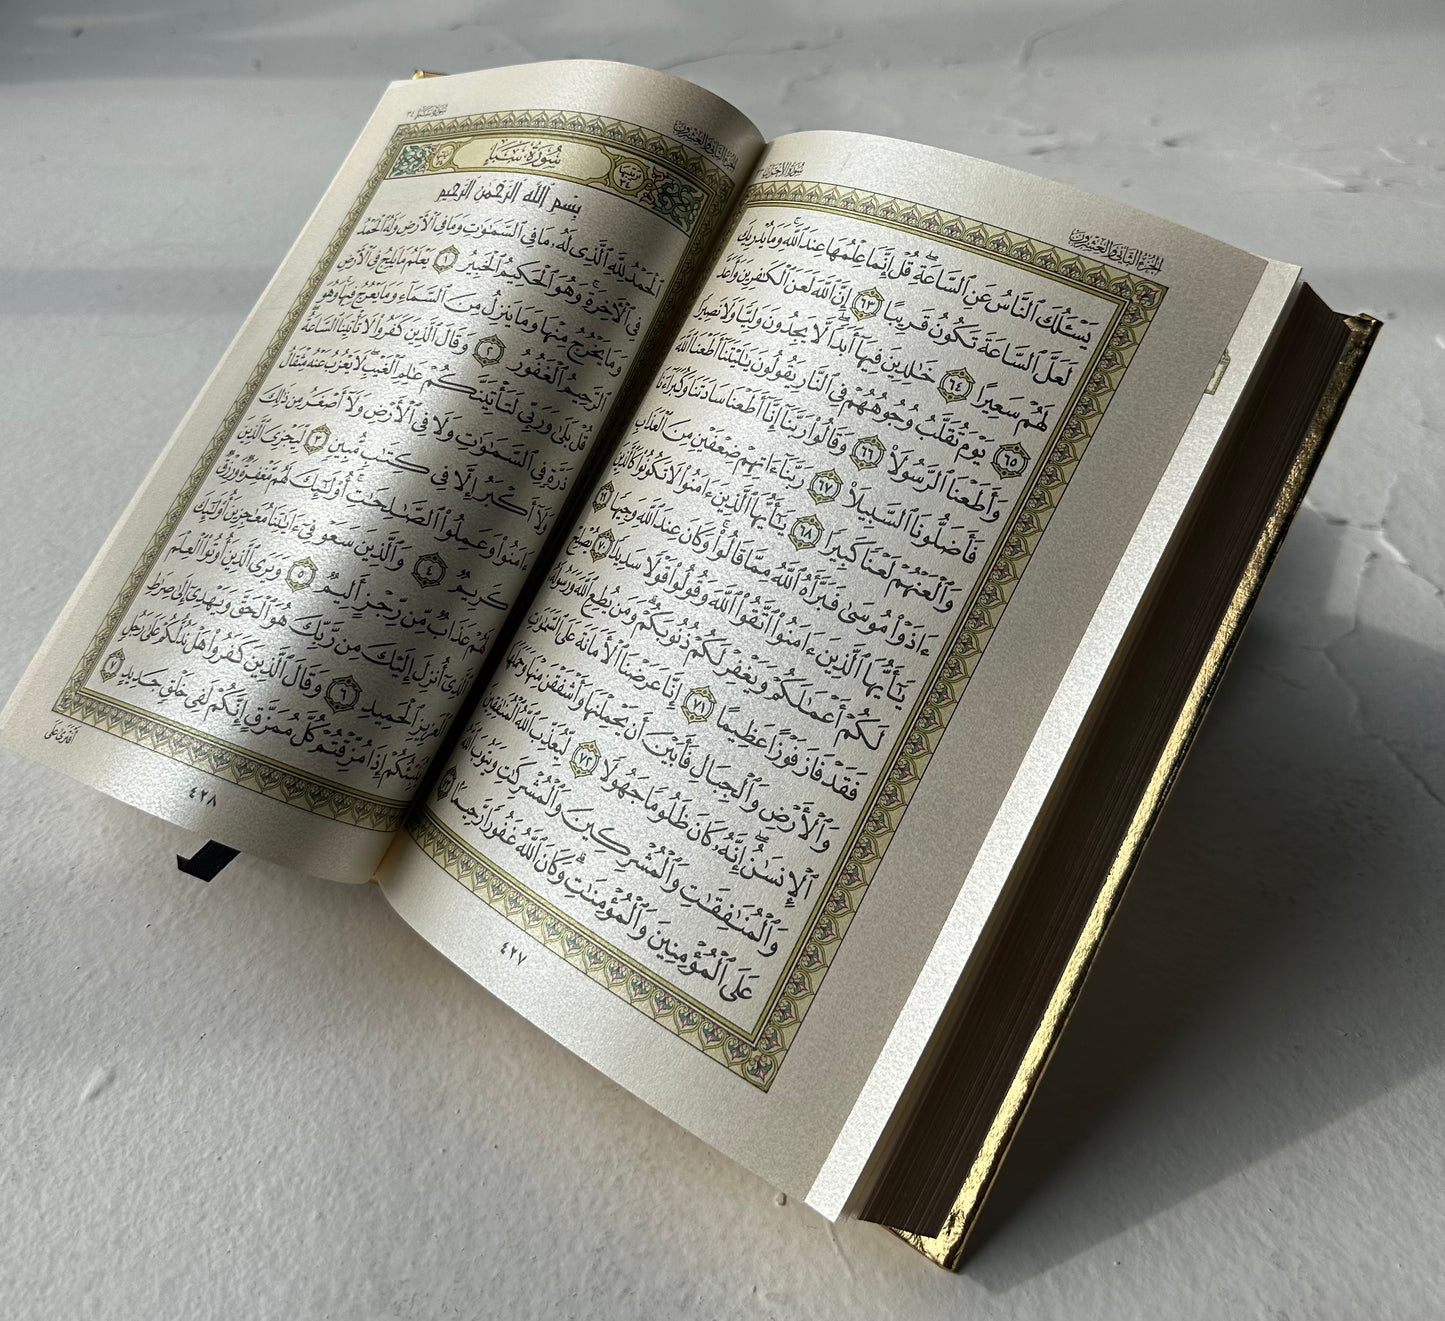 سُورَةُ الأَحْزَابِ
الجُزْءُ الثَّانِي وَالعِشْرُونَ
يَسْـَٔلُكَ ٱلنَّاسُ عَنِ ٱلسَّاعَةِۖ قُلْ إِنَّمَا عِلْمُهَا عِندَ ٱللَّهِۚ وَمَا يُدْرِيكَ
لَعَلَّ ٱلسَّاعَةَ تَكُونُ قَرِيبًا ٦٣ إِنَّ ٱللَّهَ لَعَنَ ٱلْكَٰفِرِينَ وَأَعَدَّ
لَهُمْ سَعِيرًا ٦٤ خَٰلِدِينَ فِيهَآ أَبَدًاۖ لَّا يَجِدُونَ وَلِيًّا وَلَا نَصِيرًا
٦٥ يَوْمَ تُقَلَّبُ وُجُوهُهُمْ فِى ٱلنَّارِ يَقُولُونَ يَٰلَيْتَنَآ أَطَعْنَا ٱللَّهَ
وَأَطَعْنَا ٱلرَّسُولَا۠ ٦٦ وَقَالُوا۟ رَبَّنَآ إِنَّآ أَطَعْنَا سَادَتَنَا وَكُبَرَآءَنَا
فَأَضَلُّونَا ٱلسَّبِيلَا۠ ٦٧ رَبَّنَآ ءَاتِهِمْ ضِعْفَيْنِ مِنَ ٱلْعَذَابِ
وَٱلْعَنْهُمْ لَعْنًا كَبِيرًا ٦٨ يَٰٓأَيُّهَا ٱلَّذِينَ ءَامَنُوا۟ لَا تَكُونُوا۟ كَٱلَّذِينَ
ءَاذَوْا۟ مُوسَىٰ فَبَرَّأَهُ ٱللَّهُ مِمَّا قَالُوا۟ۚ وَكَانَ عِندَ ٱللَّهِ وَجِيهًا ٦٩
يَٰٓأَيُّهَا ٱلَّذِينَ ءَامَنُوا۟ ٱتَّقُوا۟ ٱللَّهَ وَقُولُوا۟ قَوْلًا سَدِيدًا ٧٠ يُصْلِحْ
لَكُمْ أَعْمَٰلَكُمْ وَيَغْفِرْ لَكُمْ ذُنُوبَكُمْۗ وَمَن يُطِعِ ٱللَّهَ وَرَسُولَهُۥ
فَقَدْ فَازَ فَوْزًا عَظِيمًا ٧١ إِنَّا عَرَضْنَا ٱلْأَمَانَةَ عَلَى ٱلسَّمَٰوَٰتِ
وَٱلْأَرْضِ وَٱلْجِبَالِ فَأَبَيْنَ أَن يَحْمِلْنَهَا وَأَشْفَقْنَ مِنْهَا وَحَمَلَهَا
ٱلْإِنسَٰنُۖ إِنَّهُۥ كَانَ ظَلُومًا جَهُولًا ٧٢ لِّيُعَذِّبَ ٱللَّهُ ٱلْمُنَٰفِقِينَ
وَٱلْمُنَٰفِقَٰتِ وَٱلْمُشْرِكِينَ وَٱلْمُشْرِكَٰتِ وَيَتُوبَ ٱللَّهُ
عَلَى ٱلْمُؤْمِنِينَ وَٱلْمُؤْمِنَٰتِۗ وَكَانَ ٱللَّهُ غَفُورًا رَّحِيمًا ٧٣
٤٢٧
الجُزْءُ الثَّانِي وَالعِشْرُونَ
سُورَةُ سَبَإٍ ٣٤
تَرْتِيبُهَا ٣٤ سُورَةُ سَبَإٍ
بِسْمِ ٱللَّهِ ٱلرَّحْمَٰنِ ٱلرَّحِيمِ
ٱلْحَمْدُ لِلَّهِ ٱلَّذِى لَهُۥ مَا فِى ٱلسَّمَٰوَٰتِ وَمَا فِى ٱلْأَرْضِ وَلَهُ ٱلْحَمْدُ
فِى ٱلْءَاخِرَةِۚ وَهُوَ ٱلْحَكِيمُ ٱلْخَبِيرُ ١ يَعْلَمُ مَا يَلِجُ فِى ٱلْأَرْضِ
وَمَا يَخْرُجُ مِنْهَا وَمَا يَنزِلُ مِنَ ٱلسَّمَآءِ وَمَا يَعْرُجُ فِيهَاۚ وَهُوَ
ٱلرَّحِيمُ ٱلْغَفُورُ ٢ وَقَالَ ٱلَّذِينَ كَفَرُوا۟ لَا تَأْتِينَا ٱلسَّاعَةُۖ
قُلْ بَلَىٰ وَرَبِّى لَتَأْتِيَنَّكُمْ عَٰلِمِ ٱلْغَيْبِۖ لَا يَعْزُبُ عَنْهُ مِثْقَالُ
ذَرَّةٍ فِى ٱلسَّمَٰوَٰتِ وَلَا فِى ٱلْأَرْضِ وَلَآ أَصْغَرُ مِن ذَٰلِكَ
وَلَآ أَكْبَرُ إِلَّا فِى كِتَٰبٍ مُّبِينٍ ٣ لِّيَجْزِىَ ٱلَّذِينَ
ءَامَنُوا۟ وَعَمِلُوا۟ ٱلصَّٰلِحَٰتِۚ أُو۟لَٰٓئِكَ لَهُم مَّغْفِرَةٌ وَرِزْقٌ
كَرِيمٌ ٤ وَٱلَّذِينَ سَعَوْ فِىٓ ءَايَٰتِنَا مُعَٰجِزِينَ أُو۟لَٰٓئِكَ
لَهُمْ عَذَابٌ مِّن رِّجْزٍ أَلِيمٌ ٥ وَيَرَى ٱلَّذِينَ أُوتُوا۟ ٱلْعِلْمَ
ٱلَّذِىٓ أُنزِلَ إِلَيْكَ مِن رَّبِّكَ هُوَ ٱلْحَقَّ وَيَهْدِىٓ إِلَىٰ صِرَٰطِ
ٱلْعَزِيزِ ٱلْحَمِيدِ ٦ وَقَالَ ٱلَّذِينَ كَفَرُوا۟ هَلْ نَدُلُّكُمْ عَلَىٰ رَجُلٍ
يُنَبِّئُكُمْ إِذَا مُزِّقْتُمْ كُلَّ مُمَزَّقٍ إِنَّكُمْ لَفِى خَلْقٍ جَدِيدٍ ٧
أَفْتَرَىٰ عَلَى
٤٢٨